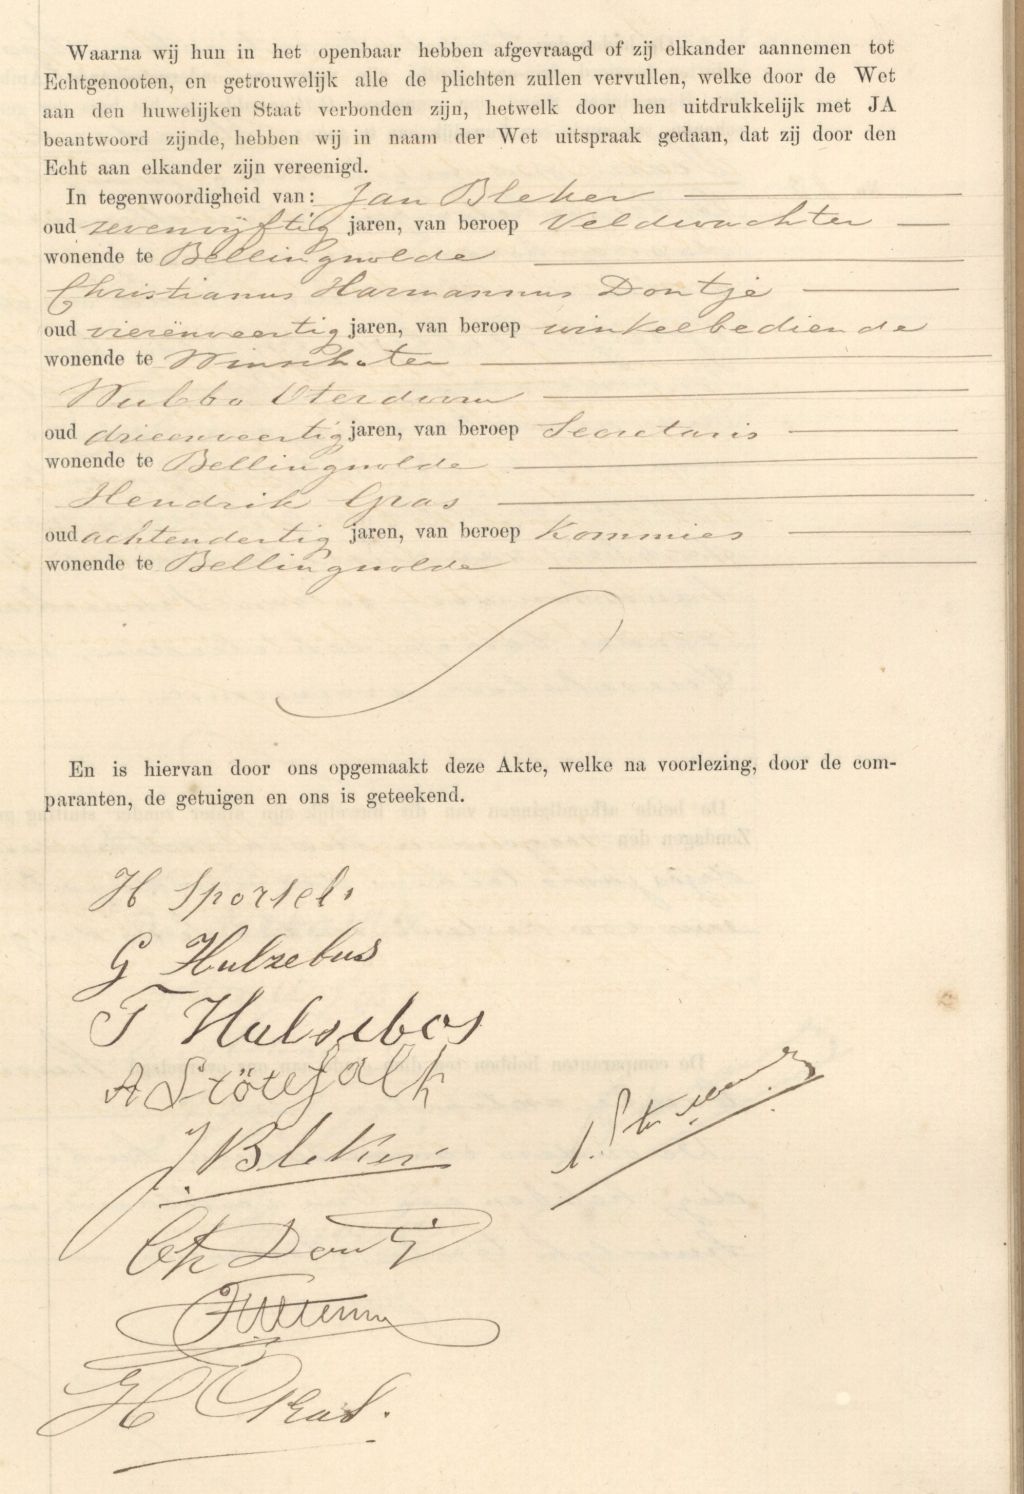 Waarna wij hun in het openbaar hebben afgevraagd of zij elkander aannemen tot
Echtgenooten, en getrouwelijk alle de plichten zullen vervullen, welke door de Wet
aan den huwelijken Staat verbonden zijn, hetwelk door hen uitdrukkelijk met JA
beantwoord zijnde, hebben wij in naam der Wet uitspraak gedaan, dat zij door den
Echt aan elkander zijn vereenigd.
In tegenwoordigheid van: Jan Bleker
oud zevenvijftig jaren, van beroep Veldwachter
wonende te Bellingwolde
Christianus Harmannus Dontje
oud vierënveertig jaren, van beroep winkelbediende
wonende te Winschoten
Wubbo Uterdwm
oud drieenveertig jaren, van beroep Secretaris
wonende te Bellingwolde
Hendrik Gras
oud achtendertig jaren, van beroep Kommies
wonende te Bellingwolde
En is hiervan door ons opgemaakt deze Akte, welke na voorlezing, door de com-
paranten, de getuigen en ons is geteekend.
H Sporsel.
G Hulzebus
T Hulsebos
A Stötefalk
J. Bleker
Ch Dontje
H Gras.